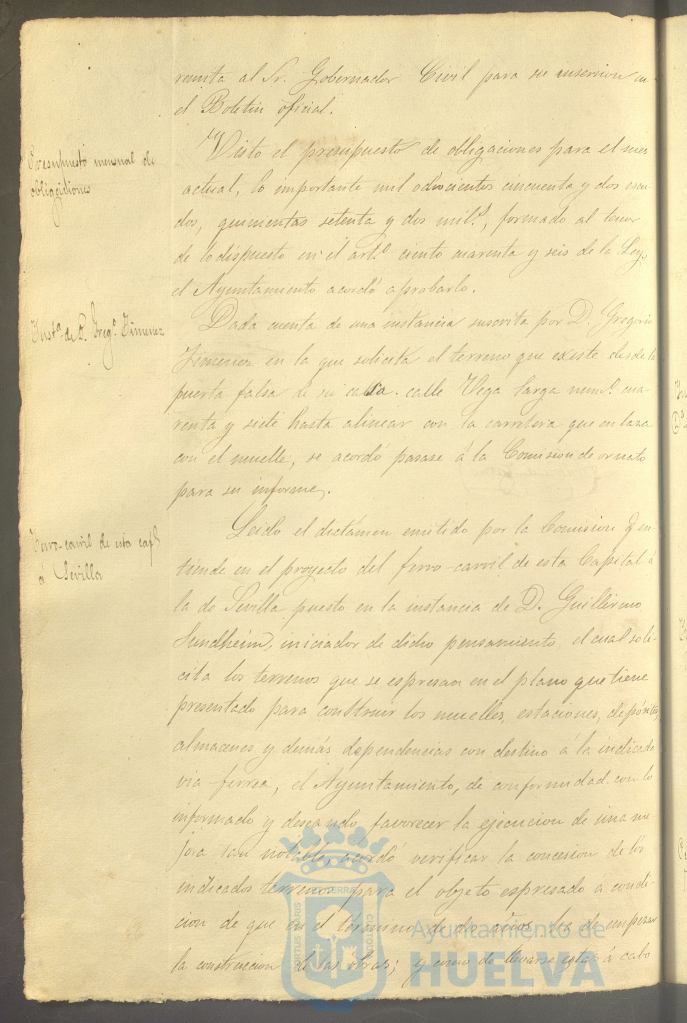 remita al Sr. Gobernador Civil para su insercion en
el Boletin oficial.
Presupuesto mensual de
obligaciones
Visto el presupuesto de obligaciones para el mes
actual, lo importante mil odocientos cincuenta y dos escu-
dos, quinientas setenta y dos mil.s, formado al tenor
de lo dispuesto en el art.o ciento cuarenta y seis de la Ley,
el Ayuntamiento acordó aprobarlo.
Inst.a de D. Greg.o Jimenez
Dada cuenta de una instancia suscrita por D. Gregorio
Jimenez en la que solicita el terreno que existe desde la
puerta falsa de su casa calle Vega larga num.o cua-
renta y siete hasta alinear con la carretera que enlaza
con el muelle, se acordó pasase á la Comision de ornato
para su informe.
Ferro-carril de esta cap.l
á Sevilla
Leido el dictámen emitido por la Comision q en-
tiende en el proyecto del ferro-carril de esta Capital á
la de Sevilla puesto en la instancia de D. Guillermo
Sundheim, iniciador de dicho pensamiento, el cual soli-
cita los terrenos que se espresan en el plano que tiene
presentado para construir los muelles, estaciones, depósitos,
almacenes y demás dependencias con destino á la indicada
via ferrea, el Ayuntamiento, de conformidad con lo
informado y deseando favorecer la ejecucion de una me-
jora tan notable, acordó verificar la concesion de los
indicados terrenos para el objeto espresado á condi-
cion de que en el término de dos años ha de empezar
la construccion de las obras; y como de llevarse estas á cabo
Ayuntamiento de
HUELVA